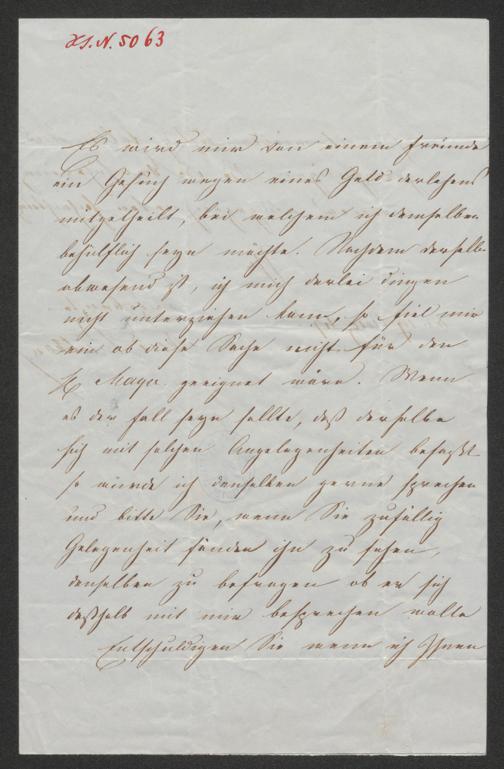 H.S.N. 5063
Es wird mir von einem Freunde
ein Gesuch wegen eines Geld-derlehens
mitgetheilt, bei welchem ich demselben
behülflich seyn möchte. Nachdem derselbe
abwesend ist, ich mich derlei Dingen
nicht unterziehen kann, so fiel mir
ein ob diese Sache nicht für den
H Maya geeignet wäre. Wenn
es der Fall seyn sollte, daß derselbe
sich mit solchen Angelegenheiten befaßt
so würde ich denselben gerne sprechen
und bitte Sie, wenn Sie zufällig
Gelegenheit fänden ihn zu sehen,
denselben zu befragen ob er sich
deßhalb mit mir besprechen wolle
Entschuldigen Sie wenn ich Ihnen